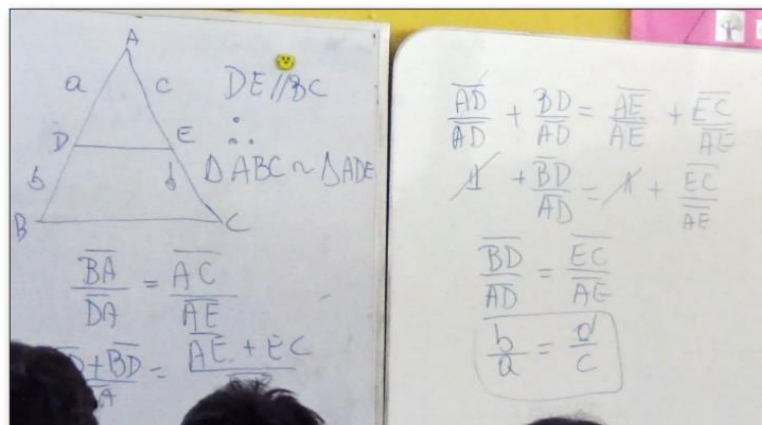 A
a c
D E
b d
B C
DE//BC
∴
ΔABC ~ ΔADE
BA/DA = AC/AE
+BD/ = AE + EC/
AD/AD + BD/AD = AE/AE + EC/AE
1 + BD/AD = 1 + EC/AE
BD/AD = EC/AE
b/a = d/c